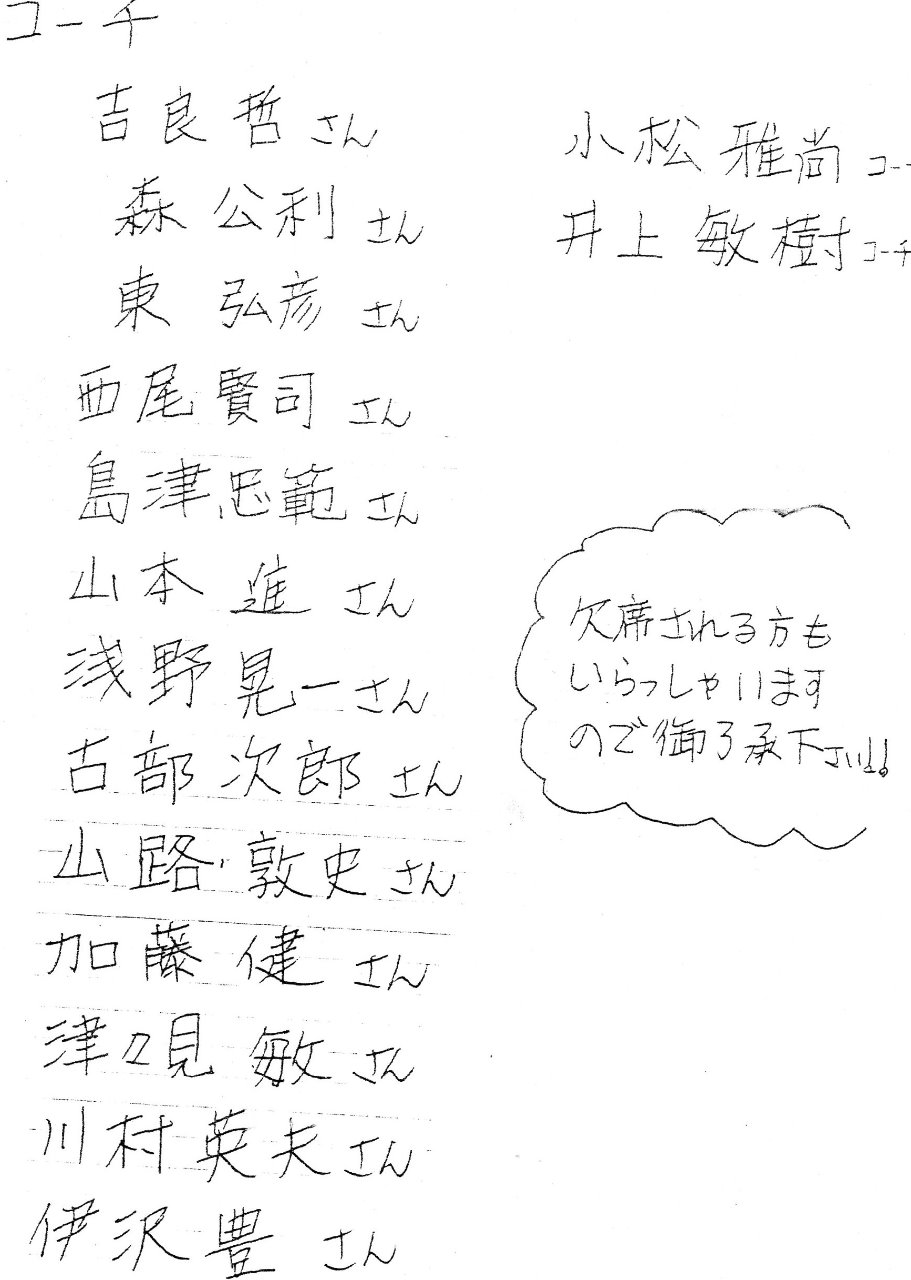 コーチ
吉良 哲さん
森 公利さん
東 弘彦さん
西尾賢司さん
島津忠範さん
山本 進さん
浅野晃一さん
古部次郎さん
山路敦史さん
加藤健さん
津々見 敏さん
川村英夫さん
伊沢豊さん
小松雅尚コー
井上敏樹コーチ
欠席される方も
いらっしゃいます
ので御了承下さい!!